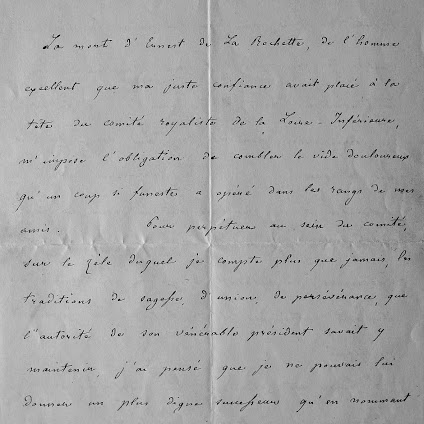 La mort d'Ernest de La Rochette, de l'homme
excellent que ma juste confiance avait placé à la
tête du comité royaliste de la Loire-Inférieure,
m'impose l'obligation de combler le vide douloureux
qu'un coup si funeste a opéré dans les rangs de mes
amis. Pour perpétuer au sein du comité,
sur le zèle duquel je compte plus que jamais, les
traditions de sagesse, d'union, de persévérance, que
l'autorité de son vénérable président savait y
maintenir, j'ai pensé que je ne pouvais lui
donner un plus digne successeur qu'en nommant